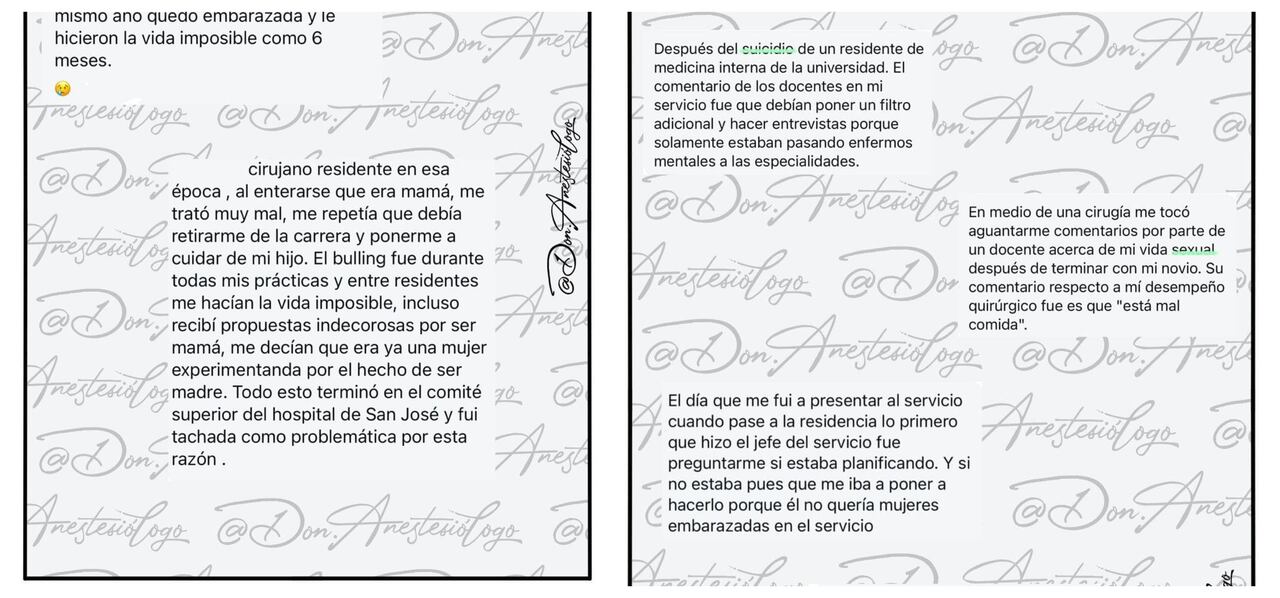 mismo año quedó embarazada y le
hicieron la vida imposible como 6
meses.
cirujano residente en esa
época , al enterarse que era mamá, me
trató muy mal, me repetía que debía
retirarme de la carrera y ponerme a
cuidar de mi hijo. El bulling fue durante
todas mis prácticas y entre residentes
me hacían la vida imposible, incluso
recibí propuestas indecorosas por ser
mamá, me decían que era ya una mujer
experimentanda por el hecho de ser
madre. Todo esto terminó en el comité
superior del hospital de San José y fui
tachada como problemática por esta
razón .
@Don.Anestesiólogo
Después del suicidio de un residente de
medicina interna de la universidad. El
comentario de los docentes en mi
servicio fue que debían poner un filtro
adicional y hacer entrevistas porque
solamente estaban pasando enfermos
mentales a las especialidades.
En medio de una cirugía me tocó
aguantarme comentarios por parte de
un docente acerca de mi vida sexual
después de terminar con mi novio. Su
comentario respecto a mí desempeño
quirúrgico fue es que "está mal
comida".
El día que me fui a presentar al servicio
cuando pase a la residencia lo primero
que hizo el jefe del servicio fue
preguntarme si estaba planificando. Y si
no estaba pues que me iba a poner a
hacerlo porque él no quería mujeres
embarazadas en el servicio